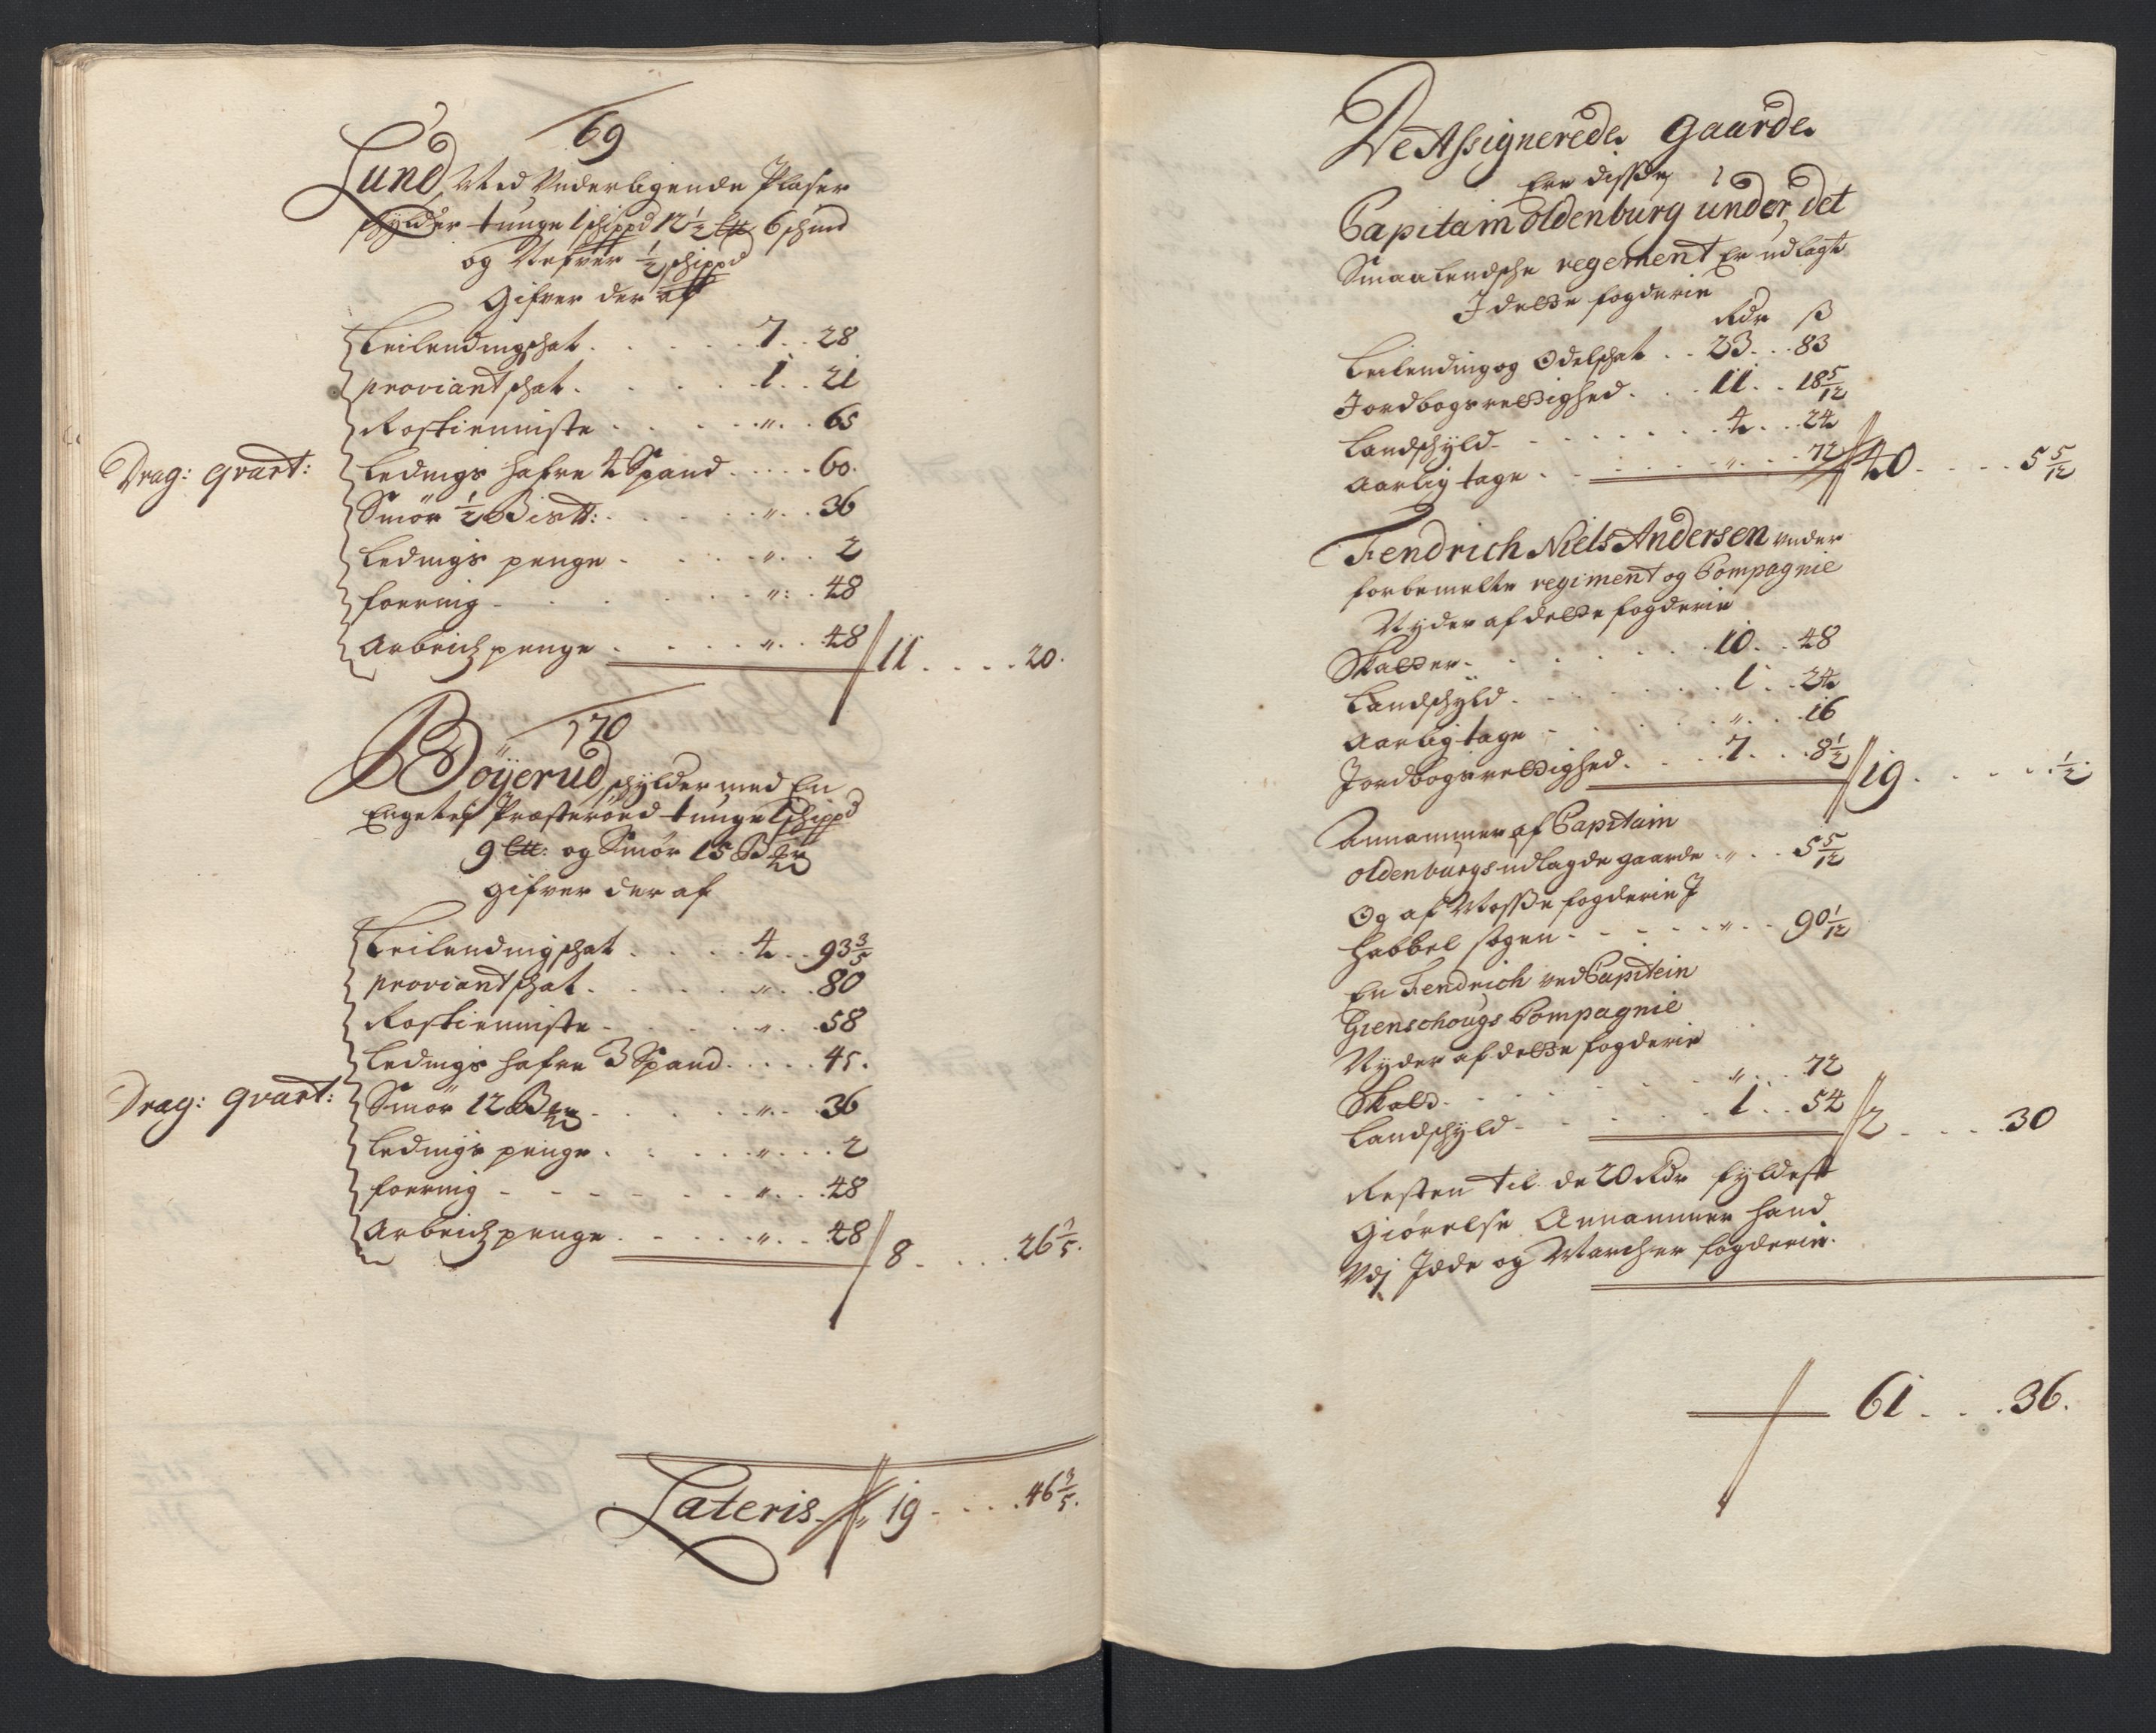 69
Lund Med Underligende Plaser
schylder tunge 1 schippd 12½ ltt 6 schind
og Nefver ½ schippd
Gifver der af
Leilendingschat . . . 7 . . 28
proviantschat . . . 1 . . 21
Rostienniste . . . „ . . 65
Drag: qvart: Ledings hafre 4 Spand . . . 60.
Smör ½ Bismtt: . . . „ . . 36
Ledings penge . . . „ . . 2
foering . . . „ . . 48
Arbeidz penge . . . „ . . 48 // 11 . . . 20.
70
Böÿerud, schylder med En
Engeteij Præsteröed tunge 1 schippd
9 ltt: og Smör 15 Bmr
gifver der af
Leilendingschat . . . 4 . . 93 3/5
proviantschat . . . „ . . 80
Rostienniste . . . „ . . 58
Ledings hafre 3 Spand . . . 45.
Drag: qvart: Smör 12 Bmr . . . „ . . 36
Ledings penge . . . „ . . 2
foering . . . „ . . 48
Arbeidz penge . . . „ . . 48 // 8 . . . 26 3/5.
Lateris // 19 . . . 46 3/5.
De Assignerede gaarde
Ere disse,
Capitain Oldenburg under det
Smaalendsche regement Er udlagt
I dette fogderie
Rdr ß
Leilending og Odelschat . . 23 . . 83
Jordbogsrettighed . . . 11 . . 18 5/12
Landschyld . . . 4 . . 24
Aarlig tage . . . „ . . 72 // 40 . . . 5 5/12
Fendrich Niels Andersen under
forbemelte regiment og Compagnie
Nyder af dette fogderie
Skatter . . . 10 . . 48
Landschyld . . . 1 . . 24
Aarlig tage . . . „ . . 16
Jordbogsrettighed . . . 7 . . 8½ // 19 . . . ½.
Annammer af Capitain
Oldenburgs udlagde gaarde . „ . . 5 5/12
Og af Mosse fogderie I
Haabel sogen . . . „ . . 90 1/12
En Fendrich ved Capitein
Grenschougs Compagnie
Nyder af dette fogderie
Skatt . . . „ . . 72
Landschyld . . . 1 . . 54 // 2 . . . 30
Resten til de 20 Rdr fyldest
Giörelse Annammer hand
Udj Idde og Marcher fogderie.
61 . . . 36.